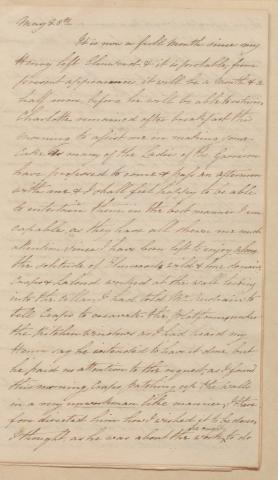 May 28th.
It is now a full month since my
Henry left Elmwood & it is probable, from
present appearances, it will be a month & a
half more before he will be able to return,
Charlotte remained after breakfast this
morning to assist me in making some
Cake, as many of the Ladies of the Garrison
have proposed to come & pass an afternoon
with me & I shall feel happy to be able
to entertain them in the best manner I am
capable, as they have all shown me much
attention since I have been left to enjoy alone
the solitude of Elmwood's wild & lone domain
Craps & worked at the wall leading
into the Cellar, I had told Mr.
to tell Craps to excavate the
the Kitchen windows as I had heard my
Henry say he intended to have it done, but
he paid no attention to the request, as I found
this morning Craps, patching up the walls
in a very unworkman like manner, I there-
fore directed him how I wished it to be done,
I thought, as he was about the work, to do